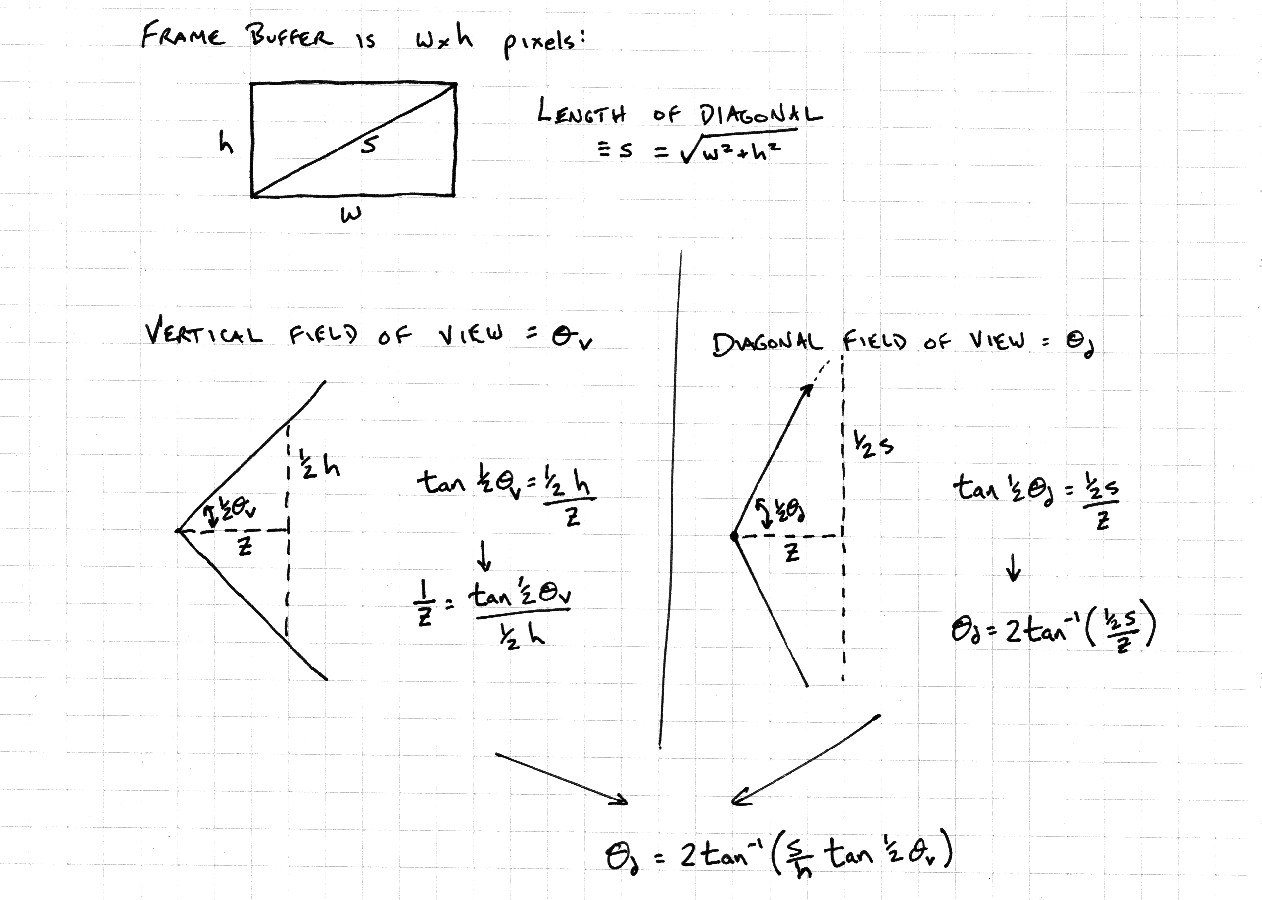 FRAME BUFFER IS w×h pixels:
h
s
w
LENGTH OF DIAGONAL
≡ s = √(w²+h²)
VERTICAL FIELD OF VIEW = θv
½h
½θv
z
tan ½θv = ½h/z
↓
1/z = tan ½θv / ½h
DIAGONAL FIELD OF VIEW = θd
½s
½θd
z
tan ½θd = ½s/z
↓
θd = 2tan⁻¹(½s/z)
θd = 2tan⁻¹(s/h tan ½θv)